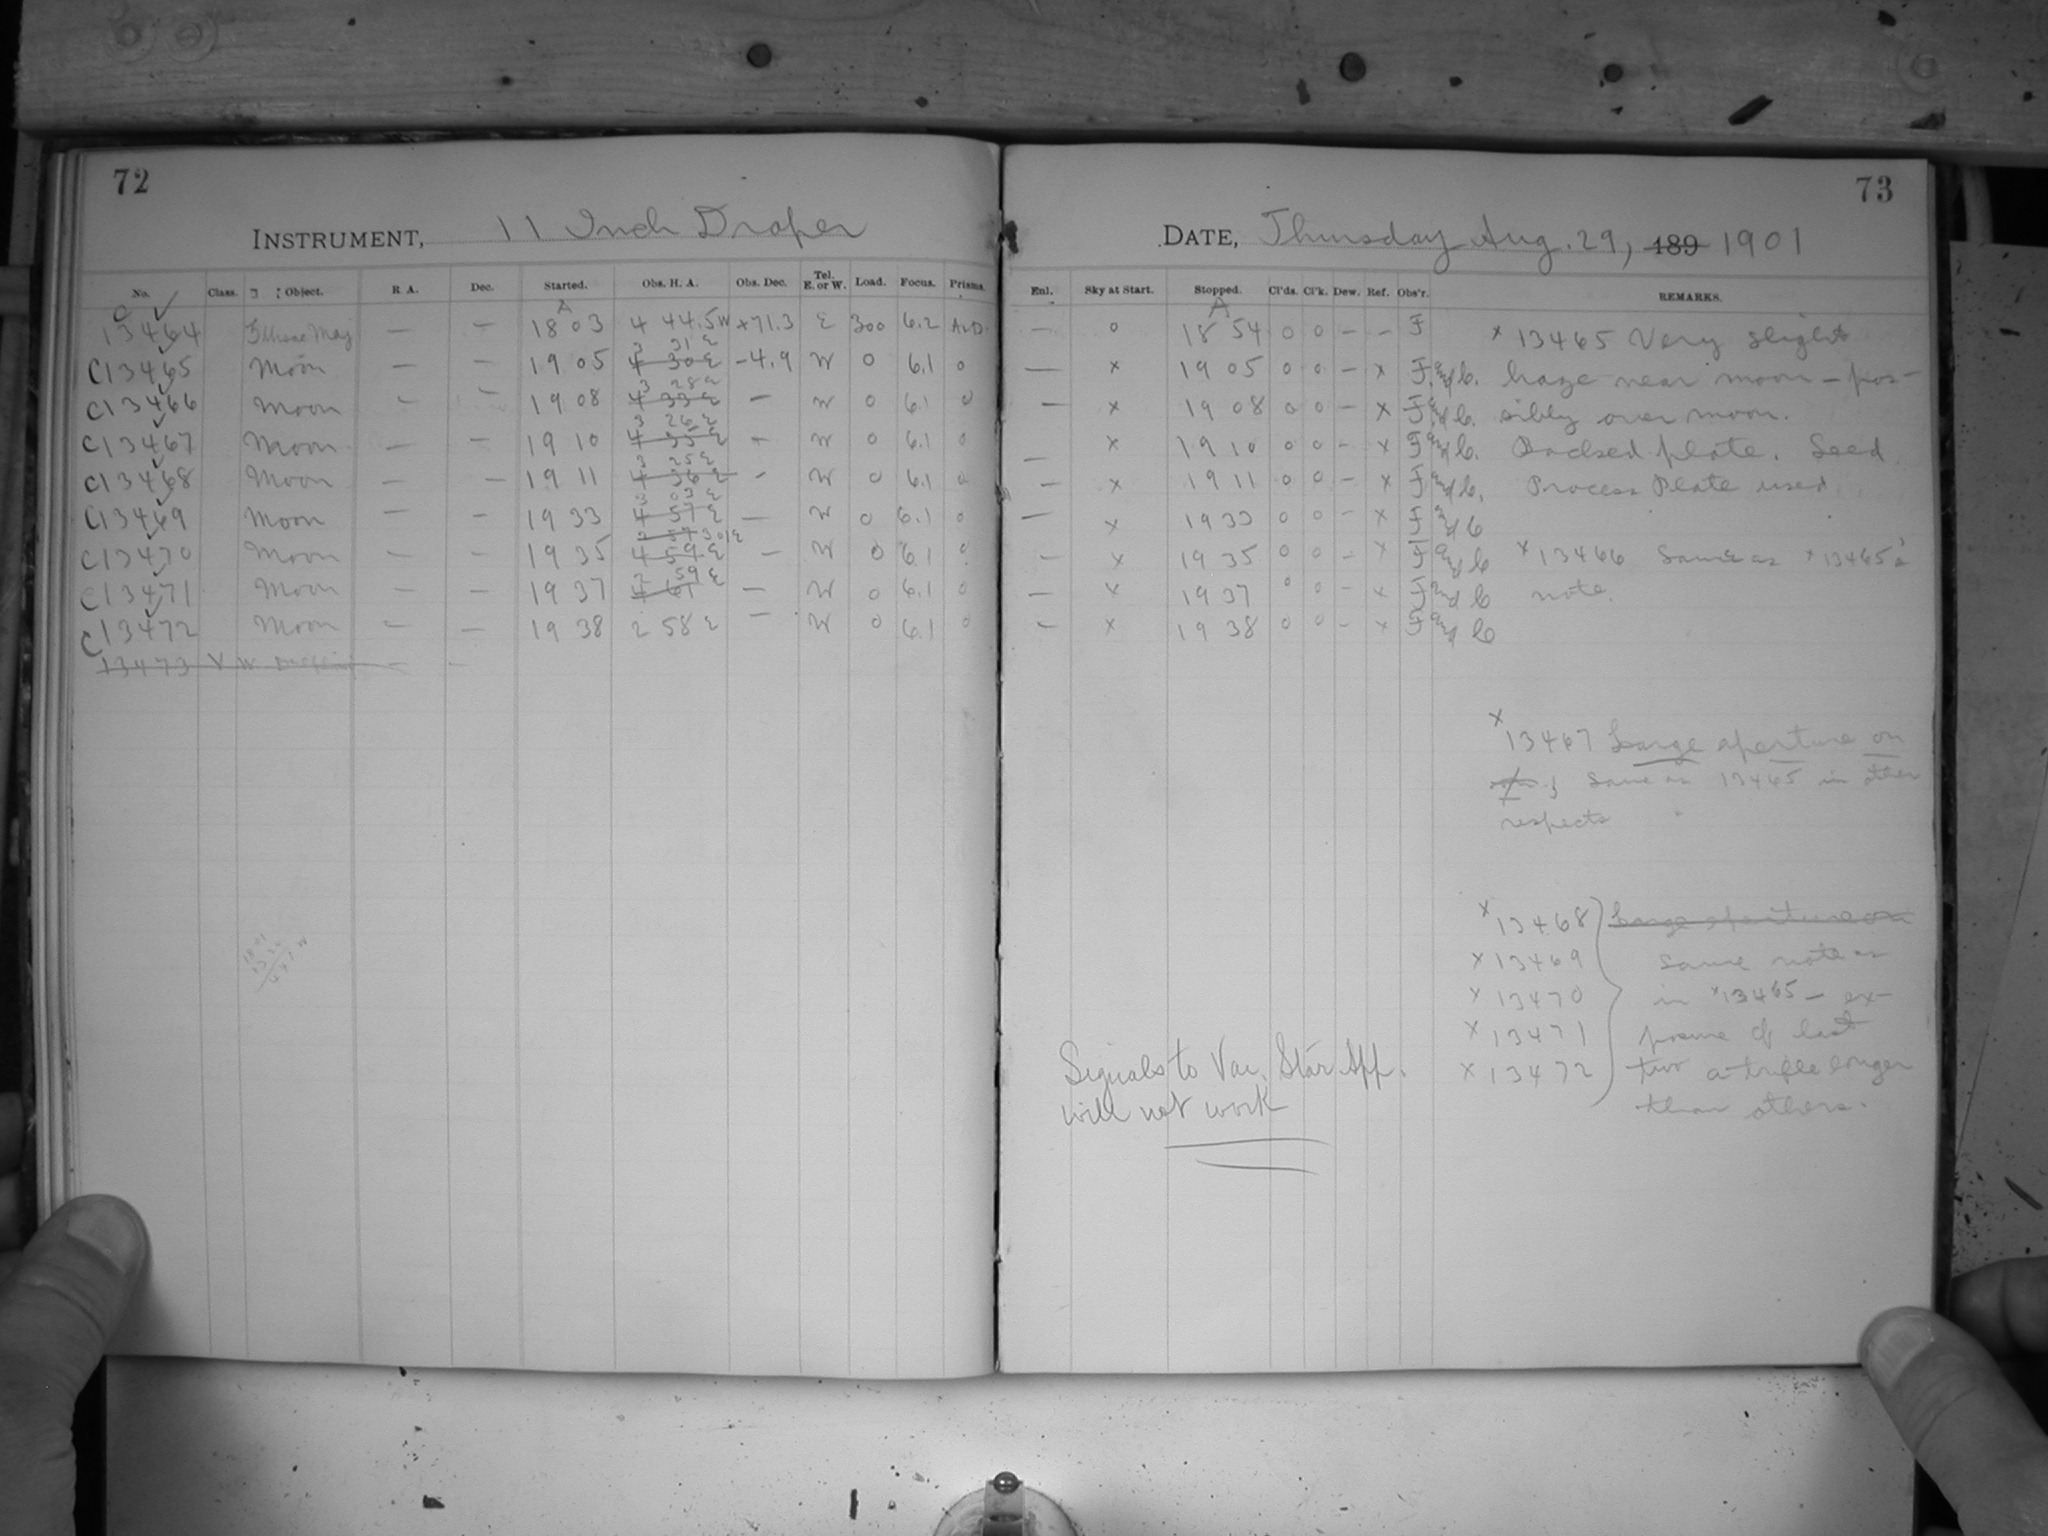 72
INSTRUMENT, 11 Inch Draper
No. Class. Object. R. A. Dec. Started. Obs. H. A. Obs. Dec. Tel. E. or W. Load. Focus. Prisms.
C 13464 — — A 18 03 4 44.5W +71.3 E 300 6.2
C13465 Moon — — 19 05 4 30 E 3 31 E -4.9 W 0 6.1 0
C13466 Moon — — 19 08 4 33 E 3 28 E — W 0 6.1 0
C13467 Moon — — 19 10 4 35 E 3 26 E — W 0 6.1 0
C13468 Moon — — 19 11 4 36 E 3 25 E - W 0 6.1 0
C13469 Moon — — 19 33 4 57 E 3 03 E — W 0 6.1 0
C13470 Moon — — 19 35 4 59 E — W 0 6.1 0
C13471 Moon — — 19 37 4 61 2 59 E — W 0 6.1 0
C13472 Moon — — 19 38 2 58 E — W 0 6.1 0
13473 — —
73
DATE, Thursday Aug. 29, 189 1901
Enl. Sky at Start. Stopped. Cl'ds. Cl'k. Dew. Ref. Obs'r. REMARKS.
— 0 A 18 54 0 0 — — F
— x 19 05 0 0 — x F. and C.
— x 19 08 0 0 — x F. and C.
— x 19 10 0 0 - x F and C.
— x 19 11 0 0 — x F and C.
— x 19 33 0 0 — x F and C
— x 19 35 0 0 — x F and C
— x 19 37 0 0 — x F and C
— x 19 38 0 0 — x F and C
x 13465 Very slight
haze near moon — pos-
sibly over moon.
Backed plate. Seed
Process Plate used
x 13466 Same as x 13465's
note.
x 13467 Large aperture on
; same as 13465 in other
respects
x 13468 Large aperture on
x 13469 same note as
x 13470 in x13465 — ex-
x 13471 posure of last
x 13472 two a trifle longer
than others.
Signals to Var. Star App.
will not work